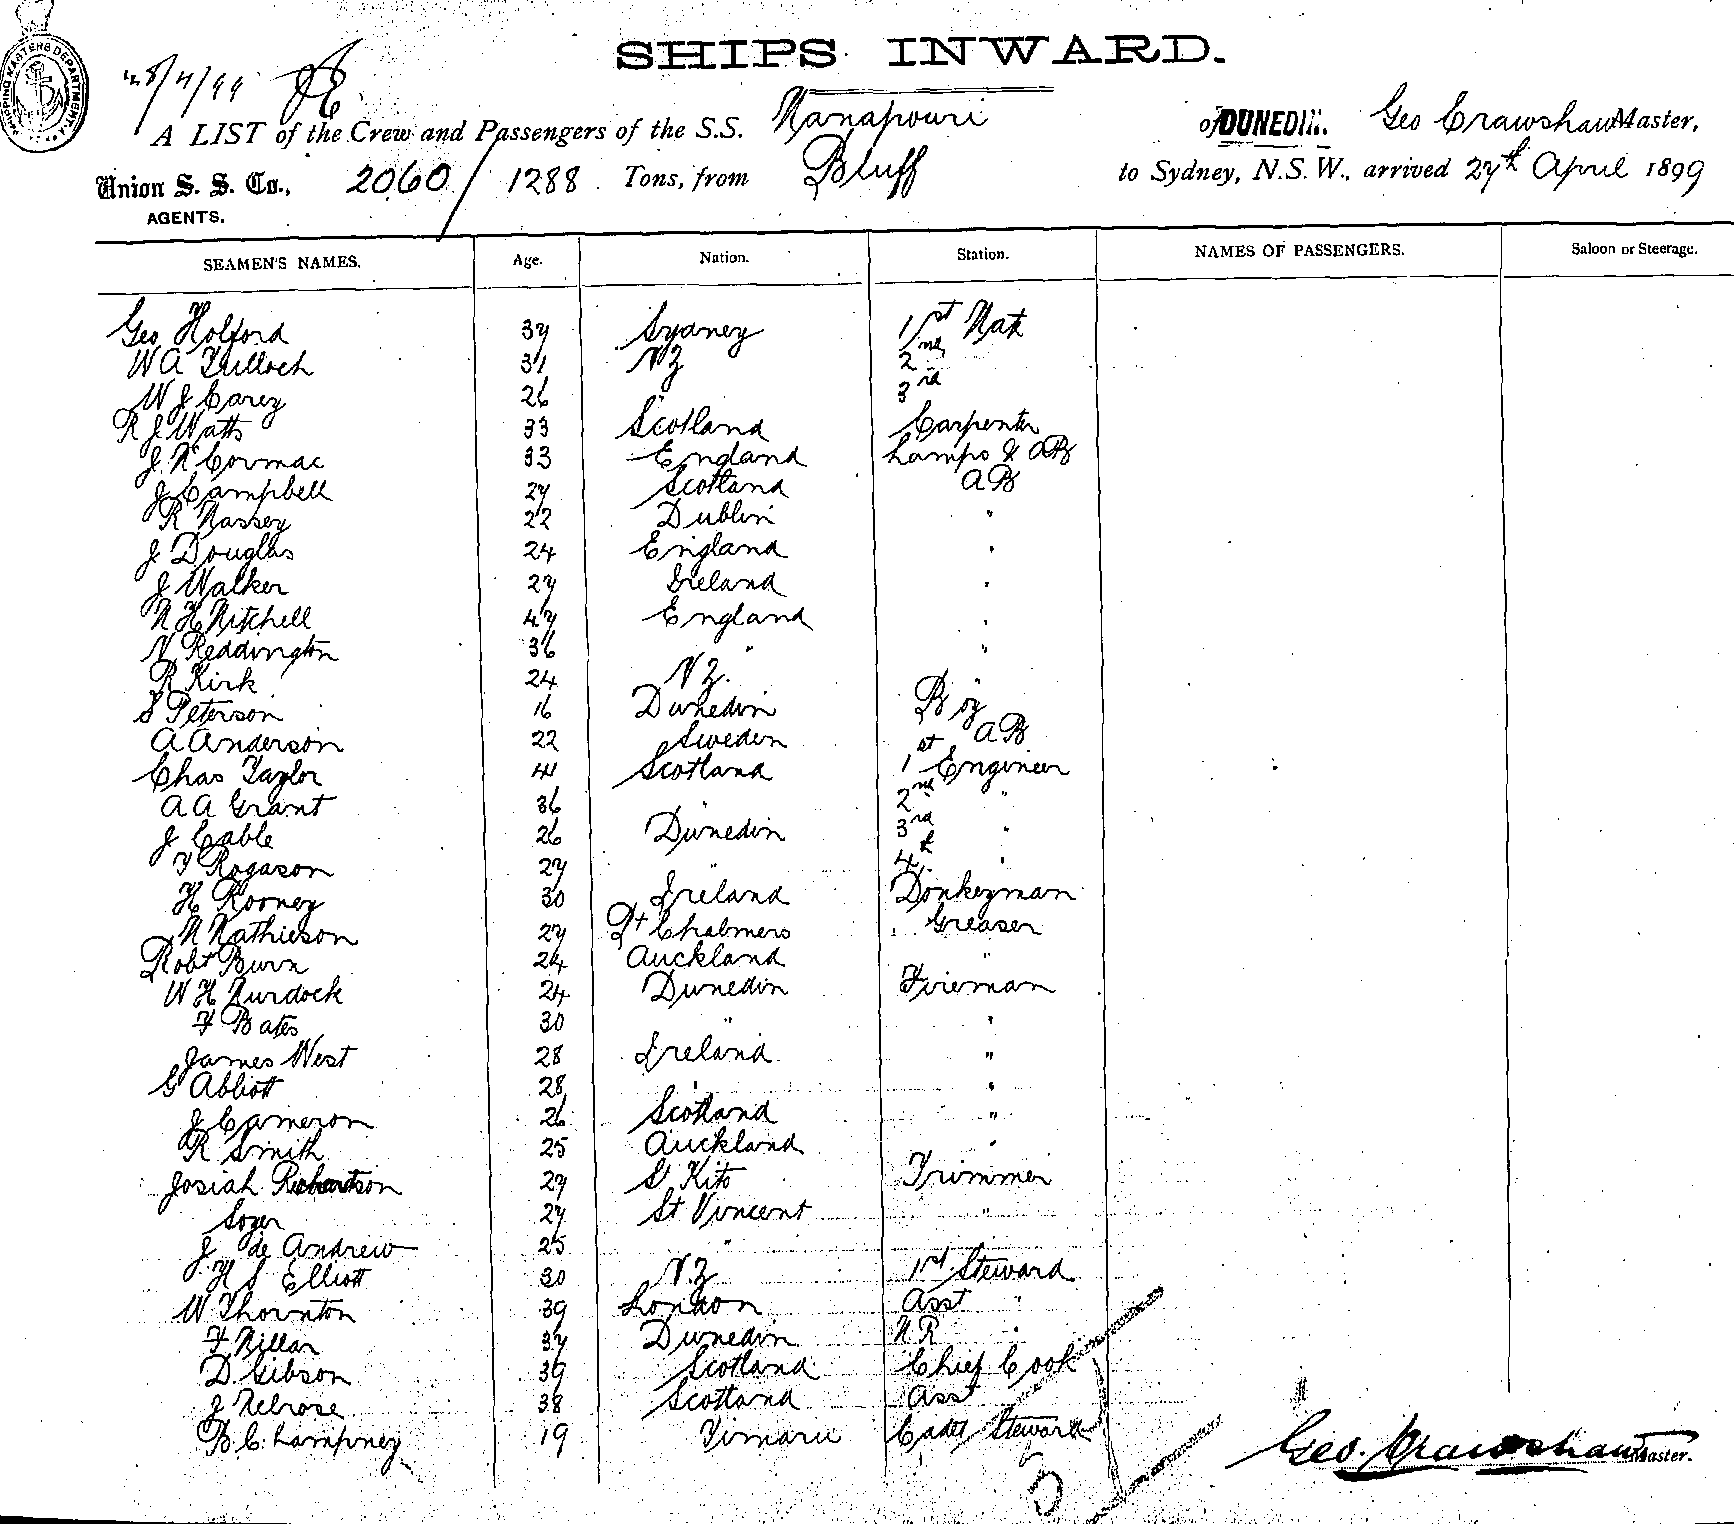 SHIPPING MASTERS DEPARTMENT
SHIPS INWARD.
28/4/99
A LIST of the Crew and Passengers of the S.S. Manapouri of DUNEDIN. Geo Crawshaw Master,
Union S. S. Co., 2060/1288 Tons, from Bluff to Sydney, N.S.W., arrived 27th April 1899
AGENTS.
SEAMEN'S NAMES. Age. Nation. Station. NAMES OF PASSENGERS. Saloon or Steerage.
Geo Holford 37 Sydney 1st Mate
W A Tulloch 31 NZ 2nd
W J Carey 26 " 3rd
R J Watts 33 Scotland Carpenter
J McCormac 33 England Lamps & AB
J Campbell 27 Scotland AB
R Massey 22 Dublin "
J Douglas 24 England "
J Walker 27 Ireland "
M H Mitchell 47 England "
N Reddington 36 " "
R Kirk 24 NZ. "
S Peterson 16 Dunedin Boy
A Anderson 22 Sweden AB
Chas Taylor 41 Scotland 1st Engineer
A A Grant 36 " 2nd "
J Cable 26 Dunedin 3rd "
F Rogason 27 " 4th "
H Rooney 30 Ireland Donkeyman
M Mathieson 27 Pt Chalmers Greaser
Robt Burn 24 Auckland "
W H Murdock 24 Dunedin Fireman
F Bates 30 " "
James West 28 Ireland "
G Abbott 28 " "
J Cameron 26 Scotland "
R Smith 25 Auckland "
Josiah Robertson 29 St Kits Trimmer
27 St Vincent "
J de Andrew 25 "
H S Elliott 30 N.Z 1st Steward
W Thornton 39 London Asst "
F Millar 37 Dunedin M R "
D. Gibson 39 Scotland Chief Cook
J Melrose 38 Scotland Asst
B. C. Lampney 19 Timaru Cadet Steward
Geo. Crawshaw Master.